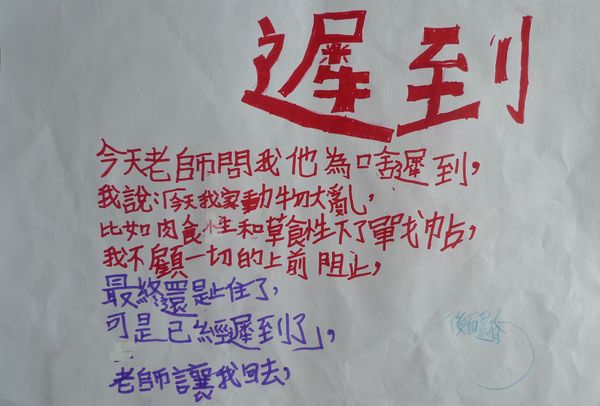 遲到
今天老師問我他為啥遲到，
我說：「今天我家動物大亂，
比如肉食性和草食性下了單戈帖，
我不顧一切的上前阻止，
最終還是止住了，
可是已經遲到了」，
老師讓我回去，
後面還有